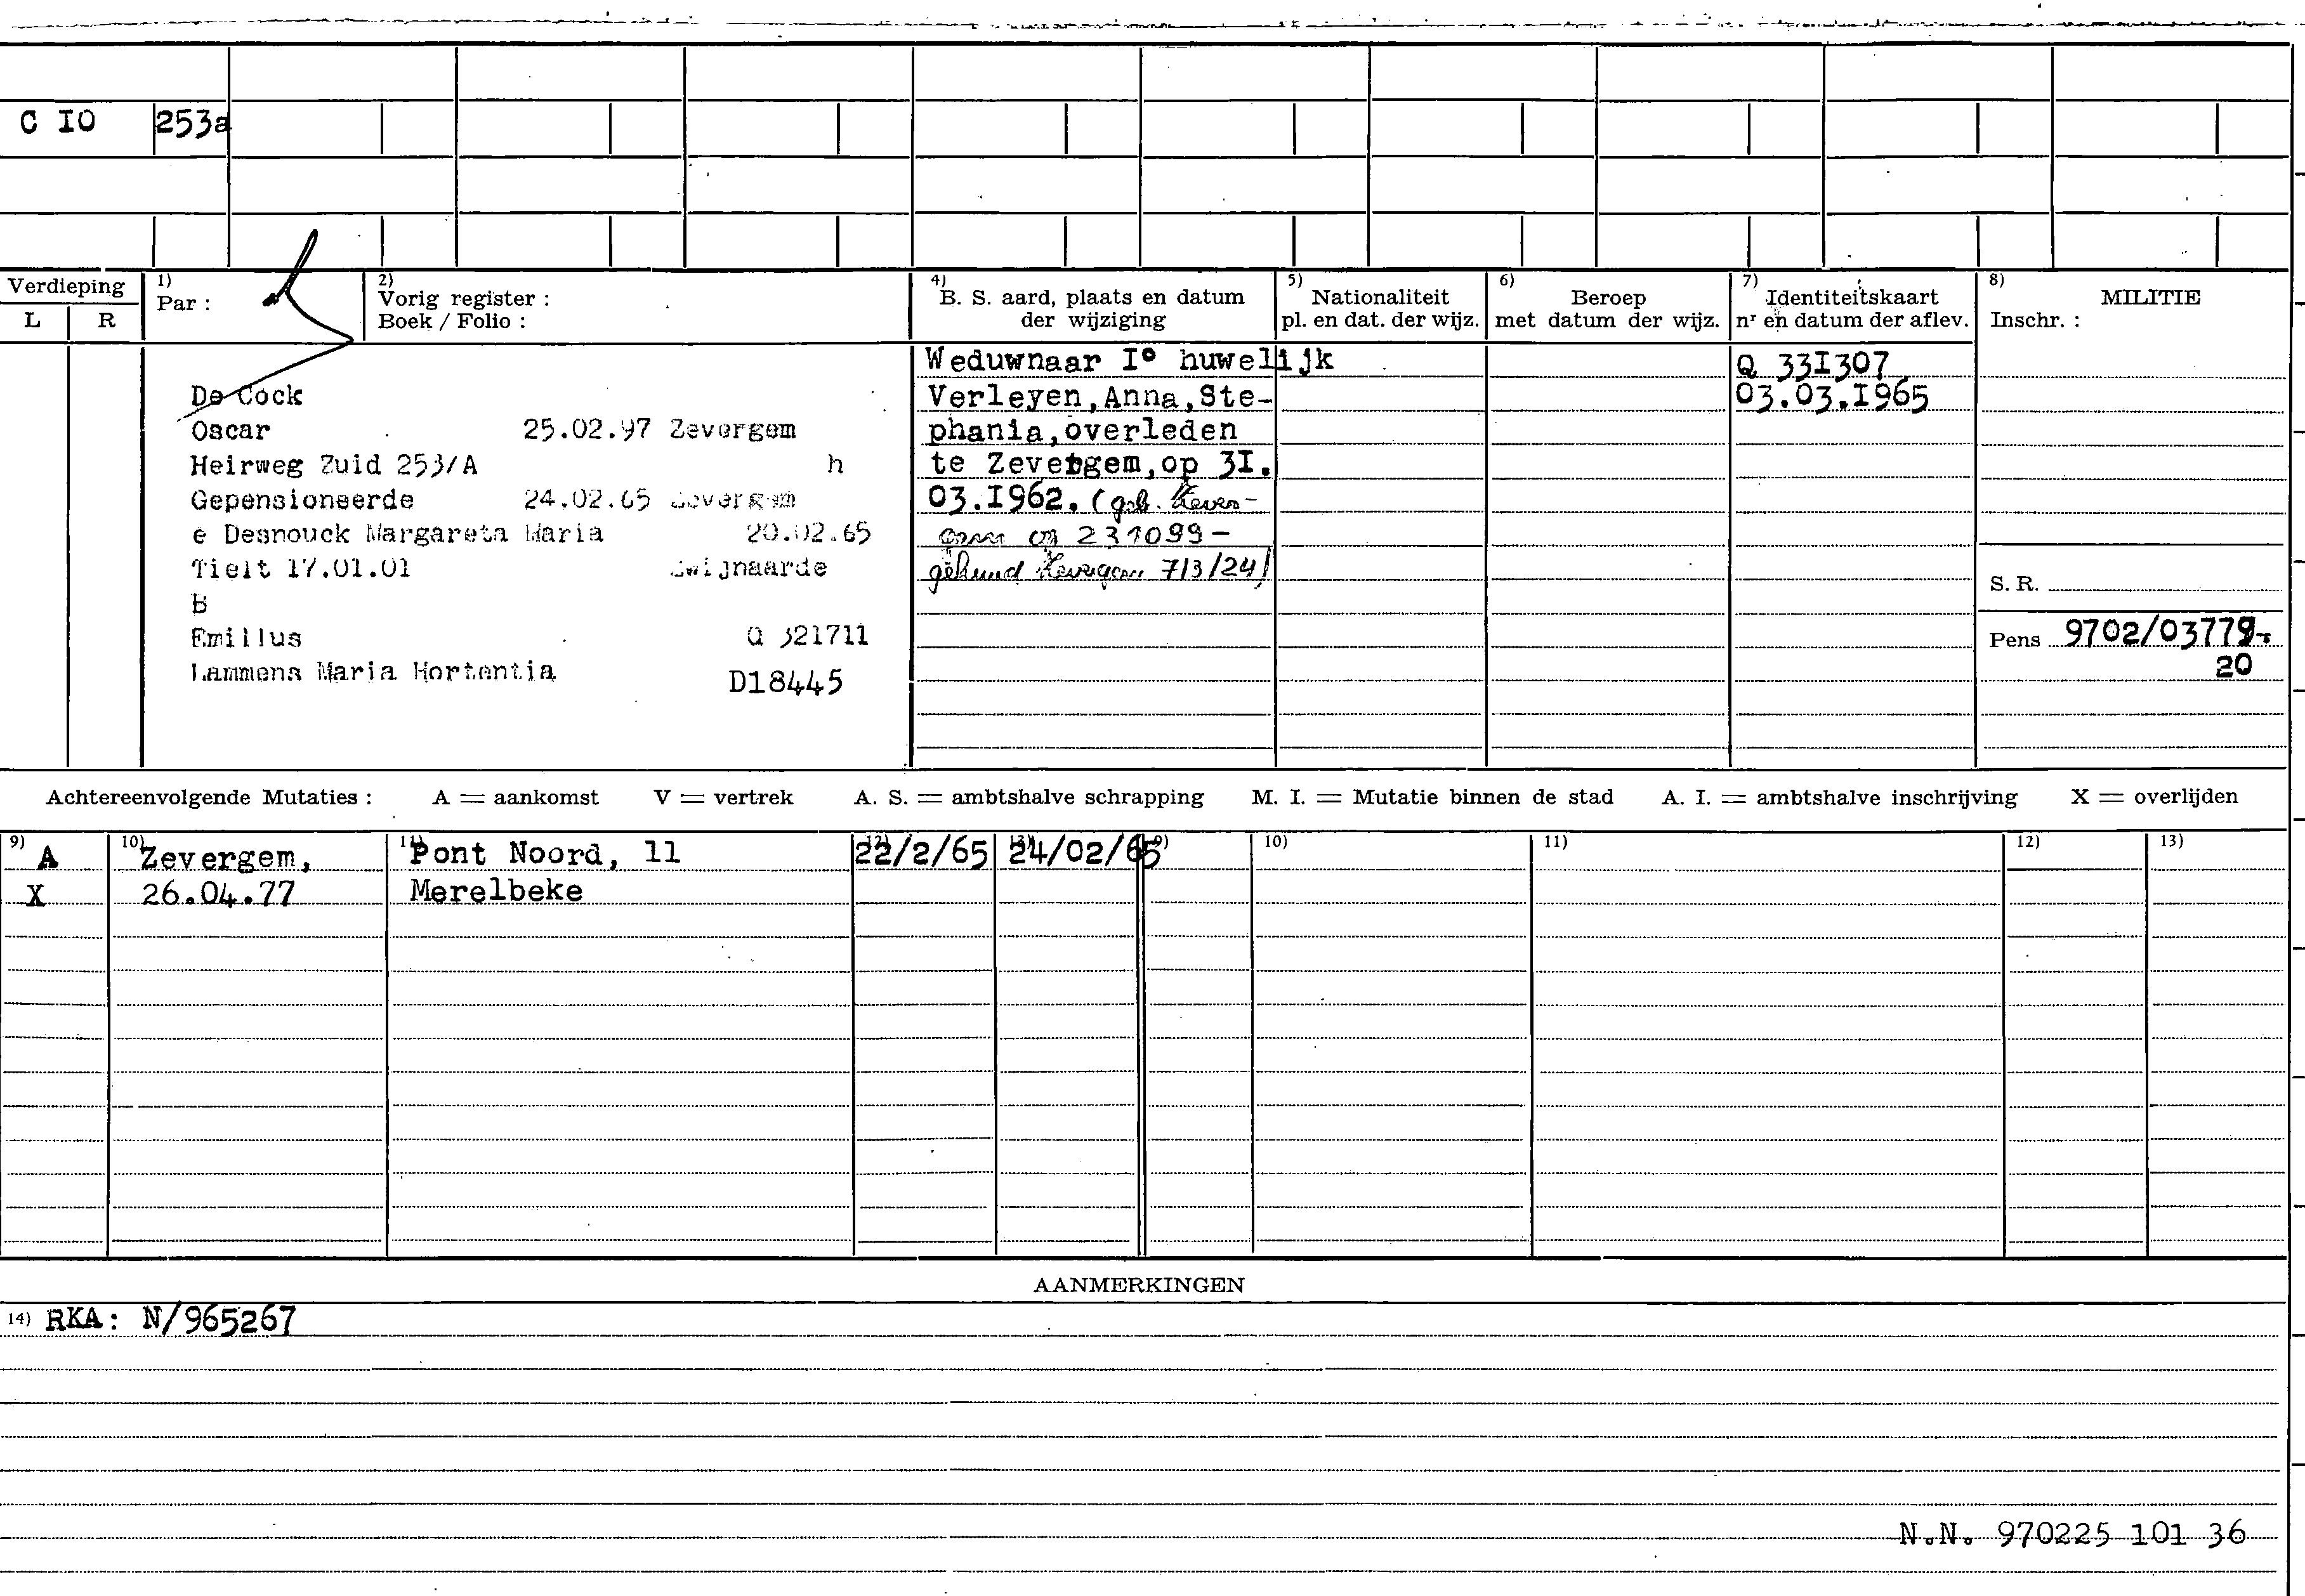 C IO 253a
Verdieping
L R
1) Par :
2) Vorig register :
Boek / Folio :
4) B. S. aard, plaats en datum
der wijziging
5) Nationaliteit
pl. en dat. der wijz.
6) Beroep
met datum der wijz.
7) Identiteitskaart
nr en datum der aflev.
8) MILITIE
Inschr. :
De Cock
Oscar 25.02.97 Zevergem
Heirweg Zuid 253/A h
Gepensioneerde 24.02.65 Zevergem
e Desnouck Margareta Maria 20.02.65
Tielt 17.01.01 Zwijnaarde
B
Emilius Q 321711
Lammens Maria Hortentia D18445
Weduwnaar I° huwelijk
Verleyen,Anna,Ste-
phania,overleden
te Zevergem,op 3I.
03.I962. (geb. Zever-
gem op 231099-
gehuwd Zevergem 7/3/24)
Q 33I307
03.03.I965
S. R.
Pens 9702/03779-
20
Achtereenvolgende Mutaties : A = aankomst V = vertrek A. S. = ambtshalve schrapping M. I. = Mutatie binnen de stad A. I. = ambtshalve inschrijving X = overlijden
9) 10) 11) 12) 13) 9) 10) 11) 12) 13)
A Zevergem, Pont Noord, 11 22/2/65 24/02/65
X 26.04.77 Merelbeke
AANMERKINGEN
14) RKA: N/965267
N.N. 970225 101 36